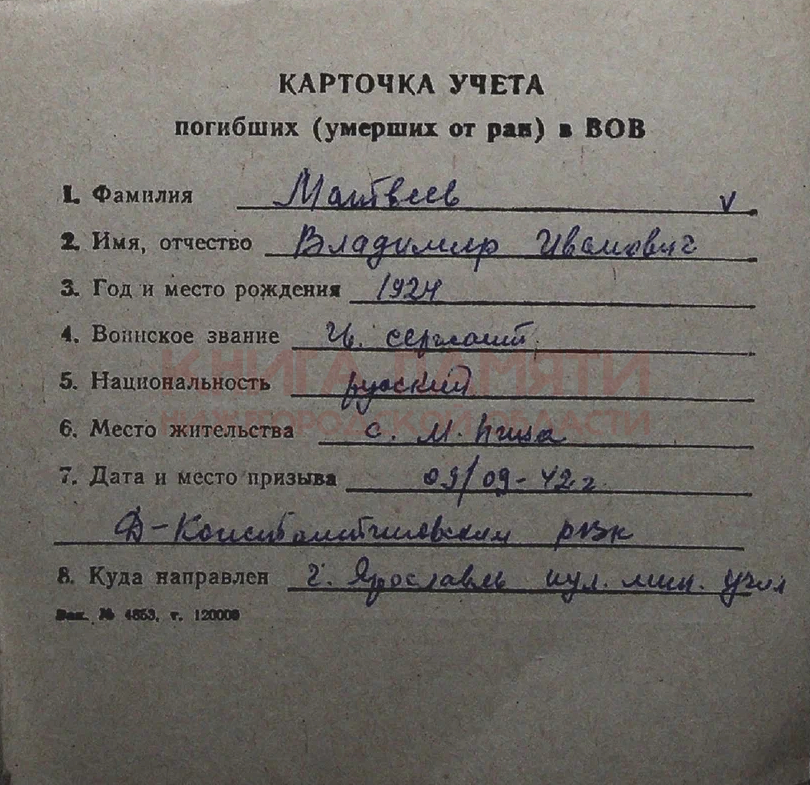 КАРТОЧКА УЧЕТА
погибших (умерших от ран) в ВОВ
1. Фамилия Матвеев v
2. Имя, отчество Владимир Иванович
3. Год и место рождения 1924
4. Воинское звание Гв. сержант
КНИГА ПАМЯТИ
5. Национальность русский
НИЖЕГОРОДСКОЙ ОБЛАСТИ
6. Место жительства с. М. Пица
7. Дата и место призыва 03/09-42 г.
Д-Константиновским рвк
8. Куда направлен г. Ярославль пул. мин. учил
Зак. № 4853, т. 120000